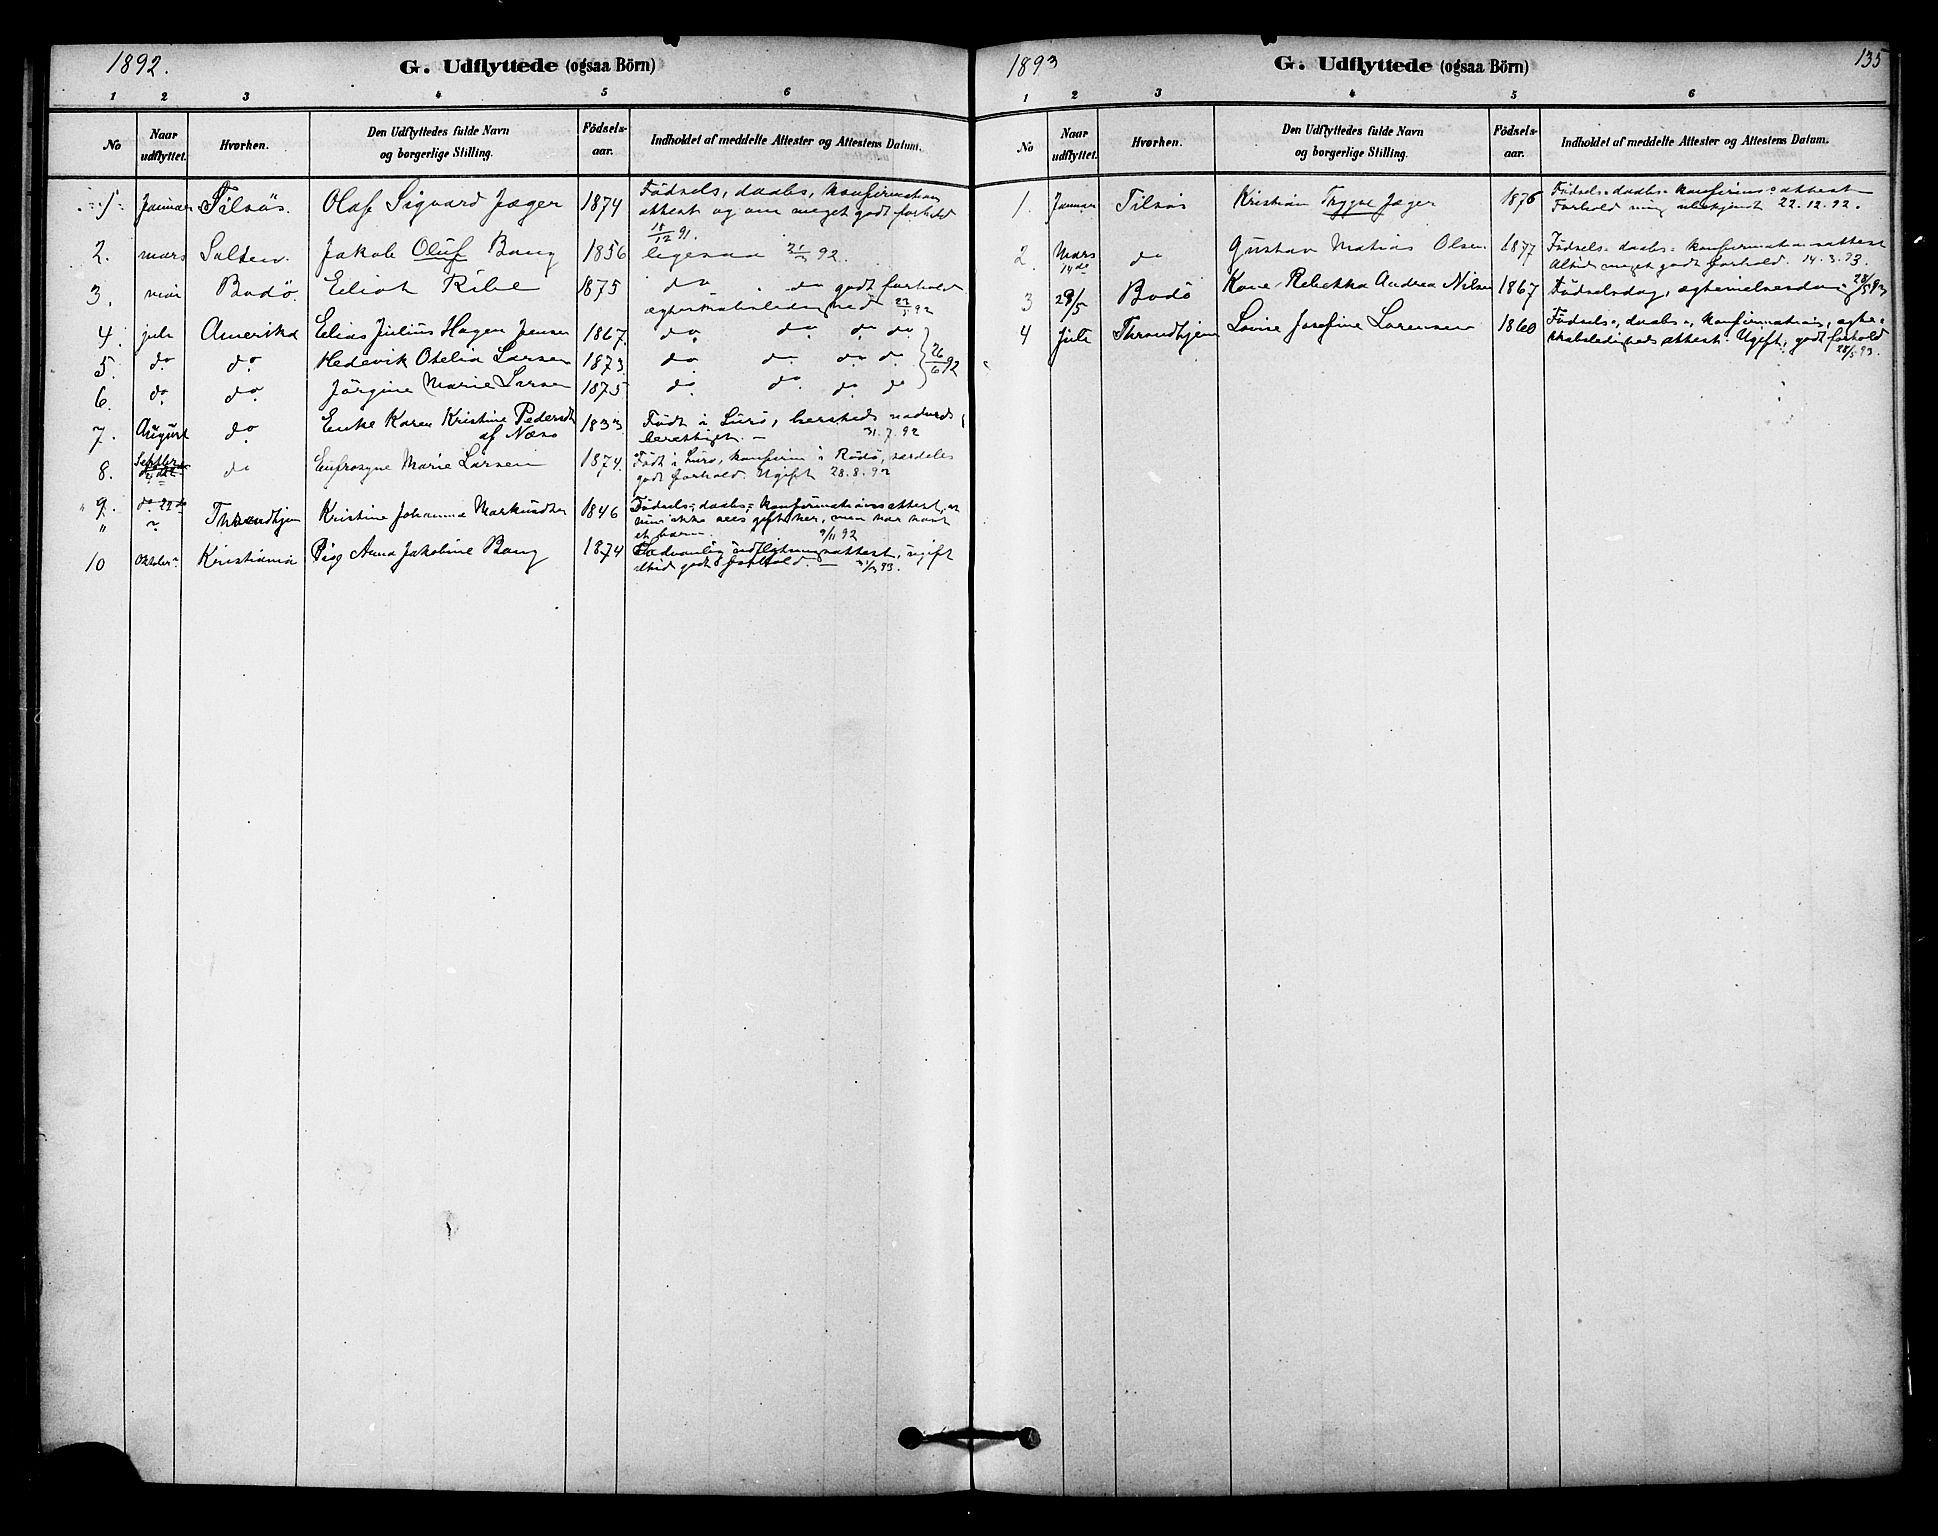 1892.
G. Udflyttede (ogsaa Börn)
1 2 3 4 5 6
No
Naar udflyttet.
Hvorhen.
Den Udflyttedes fulde Navn og borgerlige Stilling.
Födsels-aar.
Indholdet af meddelte Attester og Attestens Datum.
1 Januar Tilsös. Olaf Sigvard Jæger 1874 Födsels, daabs, konfirmations
attest og om meget godt forhold
18/12 91.
2. mars Salten. Jakob Oluf Bang 1856 ligesaa 92.
3. mai Bodö. Eliot Ribe 1875 do do godt forhold
92
4. juli Amerika Elias Julius Hagen Jensen 1867. do do do do
5. do do Hedevik Otelia Larsen 1873 do do do do 26/6 92
6. do do Jörgine Marie Larsen 1875 do do do do
7. August do Enke Karen Kristine Pedersdt 1833 Födt i Lurö,
af Næss berettiget. — 31.7.92
8. Septbr do Eufrosyne Marie Larsen 1874. Födt i Lurö, konfirm i Rödö, særdeles
godt forhold. Ugift 28.8.92
9. do 22 do Throndhjem Kristine Johanna Markusdtr 1846 Födsels-, daabs-, konfirmationsattest,
ikke sees gift her, men har havt
et barn. 9/11 92
10 Oktober Kristiania Pige Anna Jakobine Bang 1874 Sædvanlig udflytningsattest, ugift
altid godt forhold. — 93.
1893
G. Udflyttede (ogsaa Börn)
135
1 2 3 4 5 6
No
Naar udflyttet.
Hvorhen.
Den Udflyttedes fulde Navn og borgerlige Stilling.
Födsels-aar.
Indholdet af meddelte Attester og Attestens Datum.
1. Januar Tilsös Kristian Trygve Jæger 1876 Födsels- daabs- konfirms- attest
Forhold mig ubekjendt 22.12.92.
2. Mars do Gustav Matias Olsen 1877 Födsels- daabs- konfirmationsattest
14de Altid meget godt forhold. 14.3.93.
3 29/5 Bodö Kone Rebekka Andrea Nilsen 1867 Födselsdag, 28/5 93
4 Juli Throndhjem Lovise Josefine Lorensen 1860 Födsels-, daabs-, konfirmations, ægte-
skabsledigheds attest. Ugift, godt forhold
28/5 93.